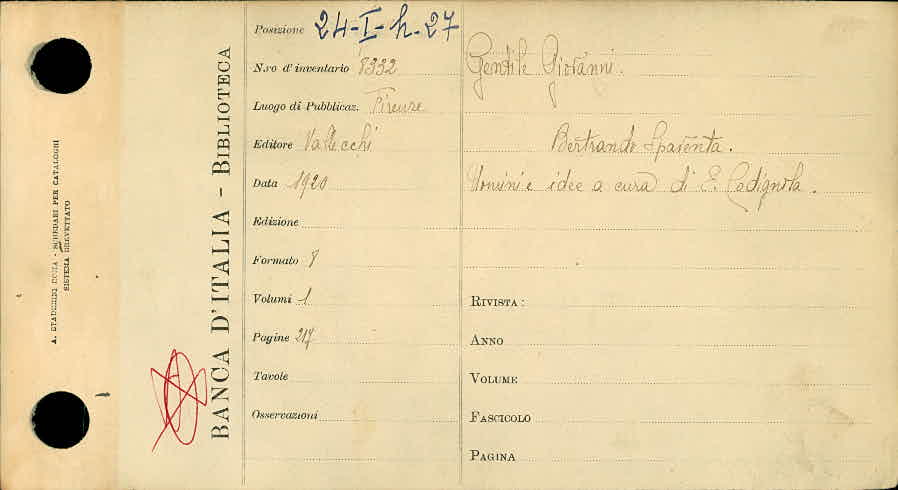 A. STADERINI ROMA - SCHEDARI PER CATALOGHI
SISTEMA BREVETTATO
BANCA D'ITALIA - BIBLIOTECA
Posizione 24-I-h-27
N.ro d'inventario 8332
Luogo di Pubblicaz. Firenze
Editore Vallecchi
Data 1920
Edizione
Formato 8
Volumi 1
Pagine 217
Tavole
Osservazioni
Gentile Giovanni.
Bertrando Spaventa.
Uomini e idee a cura di E. Codignola.
RIVISTA:
ANNO
VOLUME
FASCICOLO
PAGINA